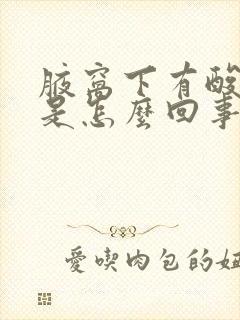 腋窩下有酸
是怎麼回事
愛喫肉包的妞